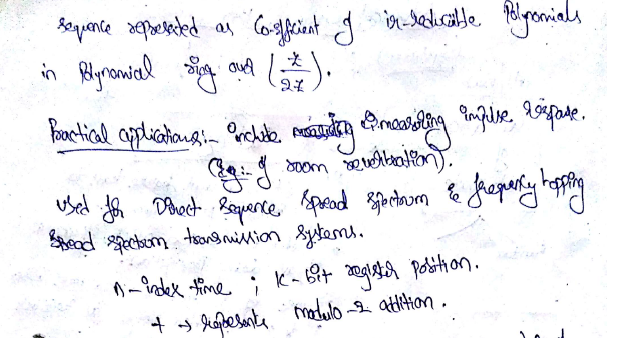 sequence represented as Co-efficient of ir-reducible Polynomials
in Polynomial ring over (Z/2Z).
Practical applications:- include measuring impulse response.
(Eg:- of room reverbration).
used for Direct Sequence Spread Spectrum & frequency hopping
Spread spectrum transmission systems.
n - index time ; k - bit register position.
+ → represents modulo-2 addition.